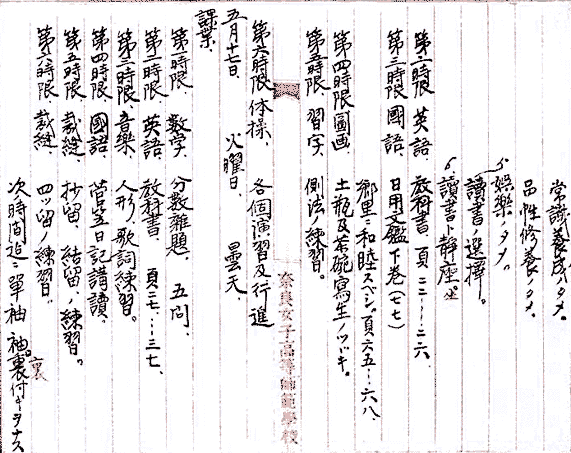 常識養成ノタメ。
品性修養ノタメ。
娯樂ノタメ。
讀書ノ選擇。
讀書ト靜座。
第二時限 英語 教科書 頁二二…三六
第三時限 國語、 日用文鑑下巻(七七)
郷里ニ和睦スベシ。頁六五…六八、
第四時限 圖画 土瓶及茶碗寫生ノツヾキ。
第五時限 習字、 側法ノ練習。
奈良女子高等師範學校
第六時限 体操、 各個演習及行進
五月十七日、 火曜日、 曇天、
課業、
第一時限 数学、 分数雜題、 五問、
第二時限、英語、 教科書、 頁二七…三七、
第三時限、音樂、 人形ノ歌詞練習。
第四時限、國語、 菅笠日記講讀、
第五時限、裁縫、 抄留、結留ノ練習。
第六時限、裁縫、 四ツ留ノ練習。
次時間迄ニ單袖 袖裏付ケヲナス
裏